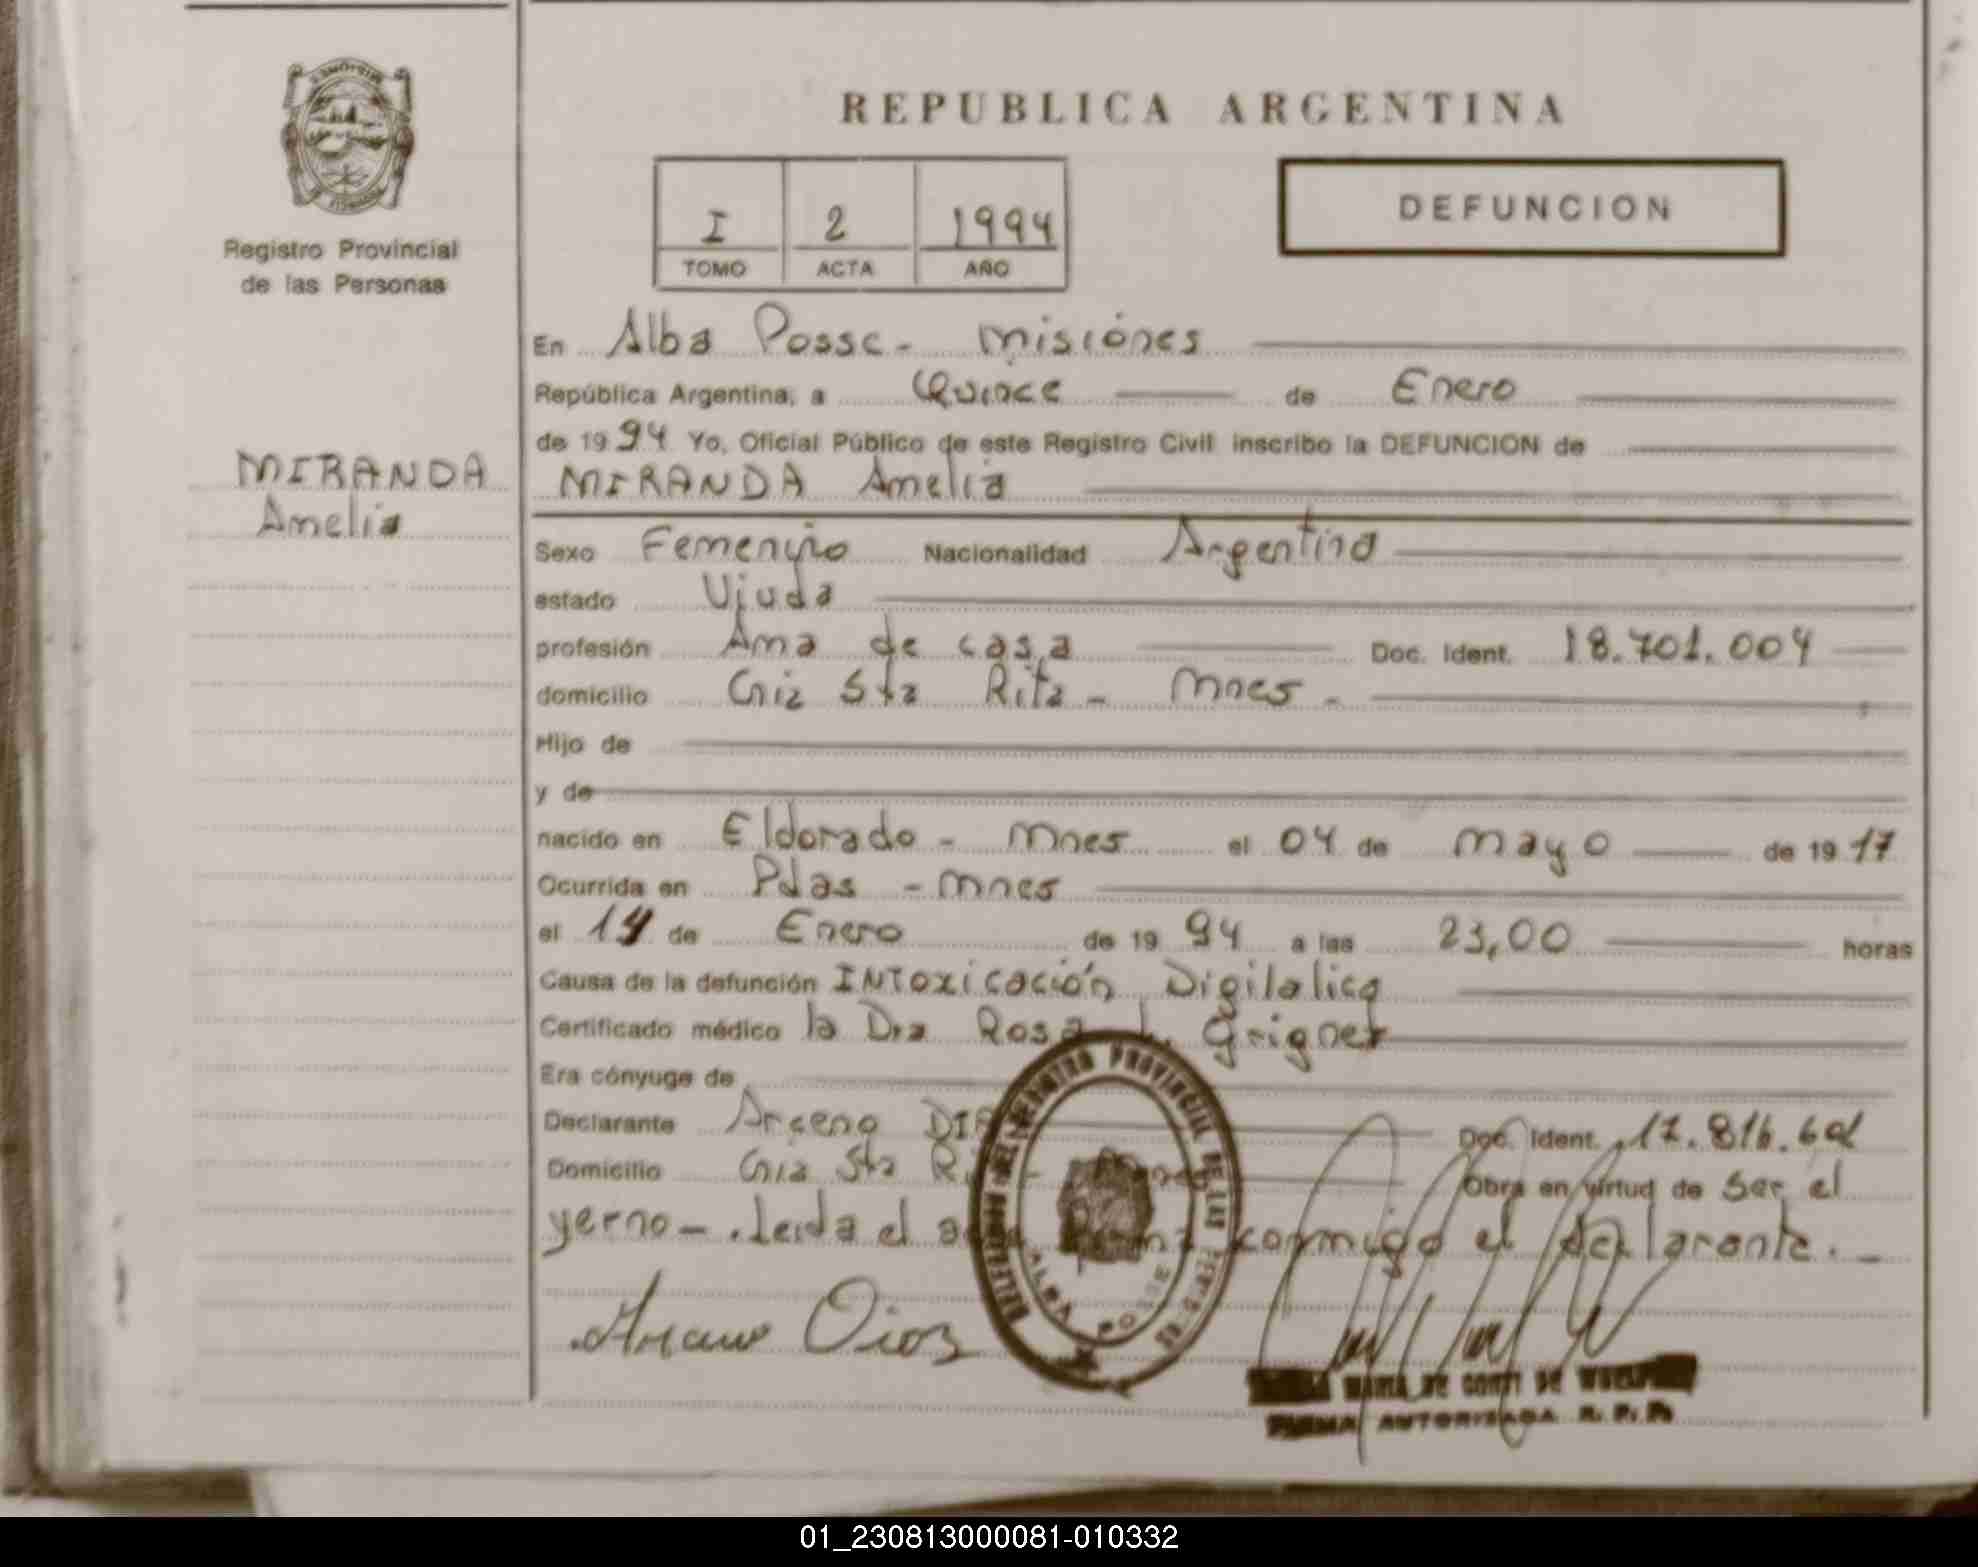 REPUBLICA ARGENTINA
Registro Provincial
de las Personas
I 2 1994
TOMO ACTA AÑO
DEFUNCION
MIRANDA
Amelia
En Alba Posse - Misiones
República Argentina, a Quince de Enero
de 1994 Yo, Oficial Público de este Registro Civil inscribo la DEFUNCION de
MIRANDA Amelia
Sexo Femenino Nacionalidad Argentina
estado Viuda
profesión Ama de casa Doc. Ident. 18.701.004
domicilio Cnia Sta Rita - Mnes -
Hijo de
y de
nacido en Eldorado - Mnes el 04 de mayo de 1917
Ocurrida en Pdas - Mnes
el 14 de Enero de 1994 a las 23,00 horas
Causa de la defunción INToxicación Digilalica
Certificado médico la Dra Rosa L. Grignet
Era cónyuge de
Declarante Arceno Doc. Ident. 17.816.601
Domicilio Cnia Sta
Obra en virtud de ser el
yerno - . Leida el conmigo el declarante. -
REGISTRO PROVINCIAL DE LAS
ALBA POSSE
MARIA DE CONTI DE
FIRMA AUTORIZADA R. P. P.
01_230813000081-010332